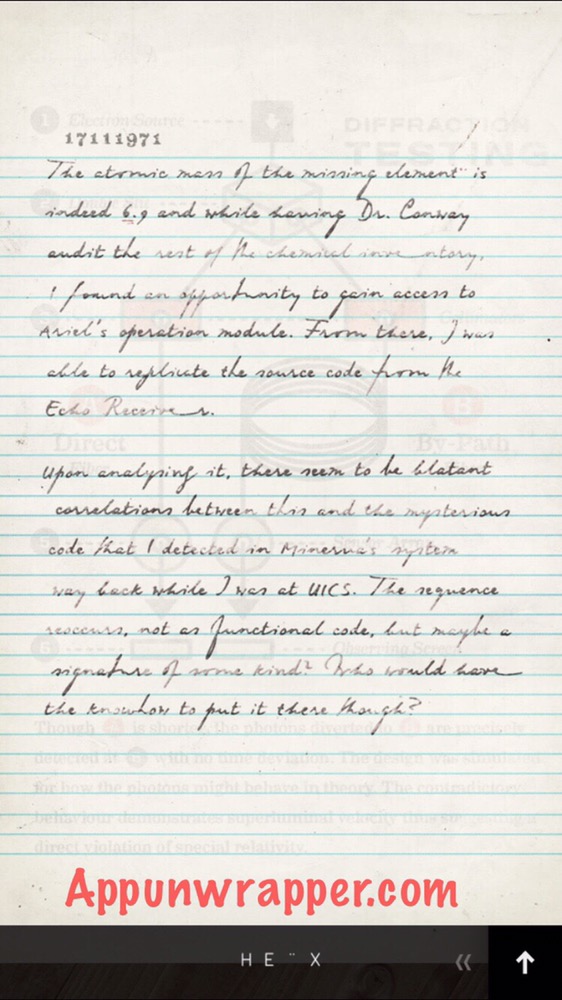 1 Electron Source
DIFFRACTION
TESTING
17111971
The atomic mass of the missing element¨ is
indeed 6.9 and while having Dr. Conway
audit the rest of the chemical inventory,
I found an opportunity to gain access to
Ariel's operation module. From there, I was
able to replicate the source code from the
Echo Receiver.
Direct
By-Path
Upon analysing it, there seem to be blatant
correlations between this and the mysterious
code that I detected in Minerva's system
way back while I was at UICS. The sequence
reoccurs, not as functional code, but maybe a
Observing Screen
signature of some kind? Who would have
the knowhow to put it there though?
Though is shorter, the photons diverted to are precisely
detected at with no time deviation. The design was simulated
for how the photons might behave in theory. The contradictory
behaviour demonstrates superluminal velocity thus suggesting a
direct violation of special relativity.
Appunwrapper.com
H E ¨ X